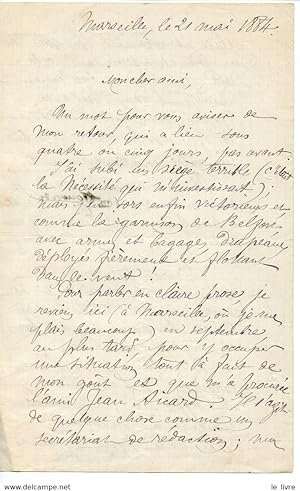 Marseille, le 21 mai 1884.
Mon cher ami,
Un mot pour vous aviser de
mon retour, qui a lieu sous
quatre ou cinq jours, pas avant
J'ai subi un siège terrible (c'était
la Nécessité qui m'investissait) ;
mais j'en sors enfin victorieux et
comme la garnison de Belfort
avec armes et bagages, drapeaux
déployés fièrement et flottant
dans le vent !
Pour parler en claire prose je
reviens ici, à Marseille, où je me
plais beaucoup, en septembre
au plus tard, pour y occuper
une situation tout à fait de
mon goût et que m'a procurée
l'ami Jean Aicard. Il s'agit
de quelque chose comme un
secrétariat de rédaction ;
© le livre
www.delcampe.net